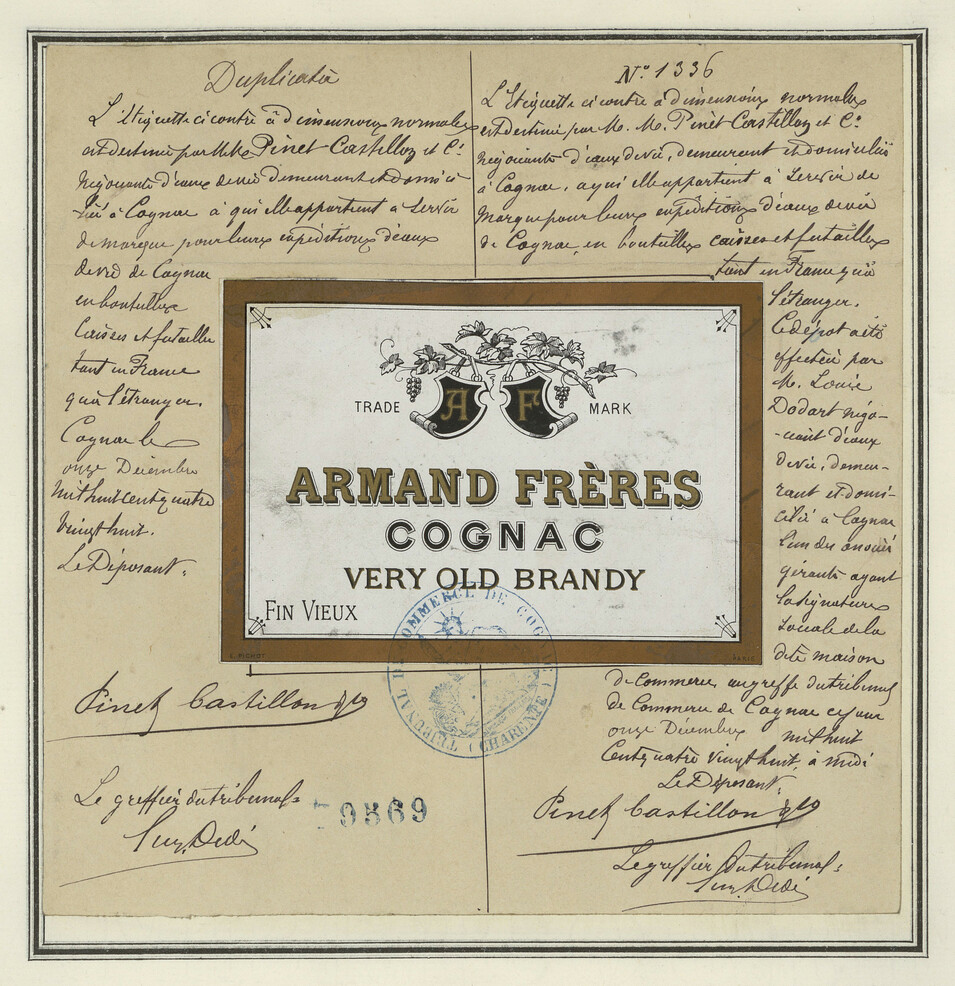 Duplicata
L'Etiquette ci contre à dimensions normales
est destinée par MM. Pinet Castillon et Cie
Négociants d'eaux de vie demeurant et domici
liés à Cognac à qui elle appartient à servir
de marque pour leurs expéditions d'eaux
de vie de Cognac
en bouteilles
caisses et futailles
tant en France
qu'à l'étranger.
Cognac le
onze Décembre
mil huit cent quatre
vingt huit.
Le Déposant:
Pinet Castillon & Co
Le greffier du tribunal=
59869
No 1336
L'Etiquette ci contre à dimensions normales
est destinée par M. M. Pinet Castillon et Cie
Négociants d'eaux de vie, demeurant et domiciliés
à Cognac, a qui elle appartient à servir de
Marque pour leurs expéditions d'eaux de vie
de Cognac, en bouteilles caisses et futailles
tant en France qu'à
l'étranger.
Ce dépot a été
effectué par
M. Louis
Dodart négo-
-ciant d'eaux
de vie, demeu-
rant et domi-
cilié à Cognac
l'un des associés
gérants ayant
la signature
sociale de la
dite maison
de Commerce, au greffe du tribunal
de Commerce de Cognac ce jour
onze Décembre mil huit
Cent quatre vingt huit, à midi
Le Déposant:
Pinet Castillon & Co
Le greffier du tribunal:
TRADE A F MARK
ARMAND FRÈRES
COGNAC
VERY OLD BRANDY
FIN VIEUX
TRIBUNAL DE COMMERCE DE COGNAC (CHARENTE)
PARIS